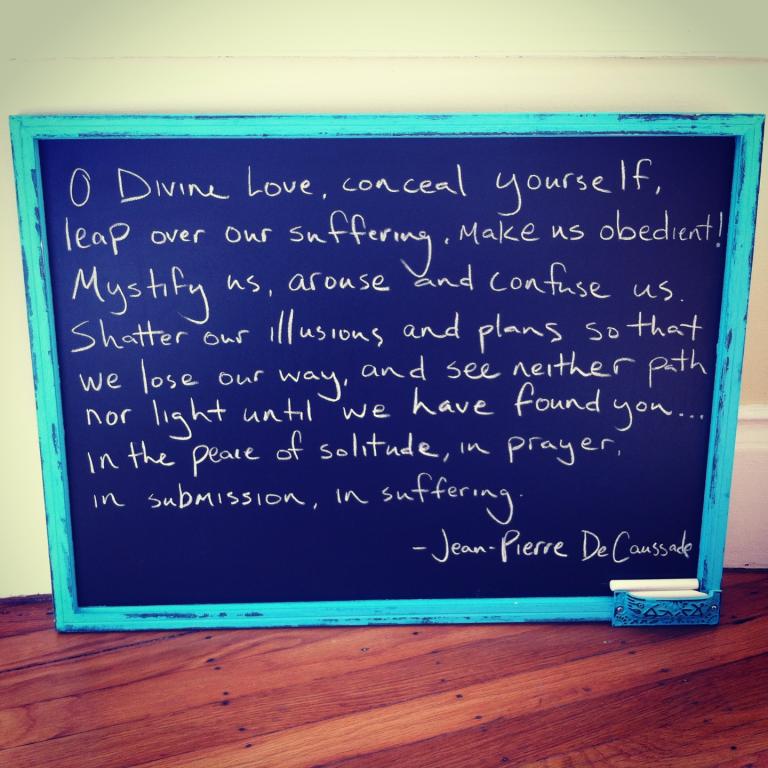 O Divine Love, conceal yourself,
leap over our suffering, make us obedient!
Mystify us, arouse and confuse us.
Shatter our illusions and plans so that
we lose our way, and see neither path
nor light until we have found you...
in the peace of solitude, in prayer,
in submission, in suffering.
-Jean-Pierre De Caussade